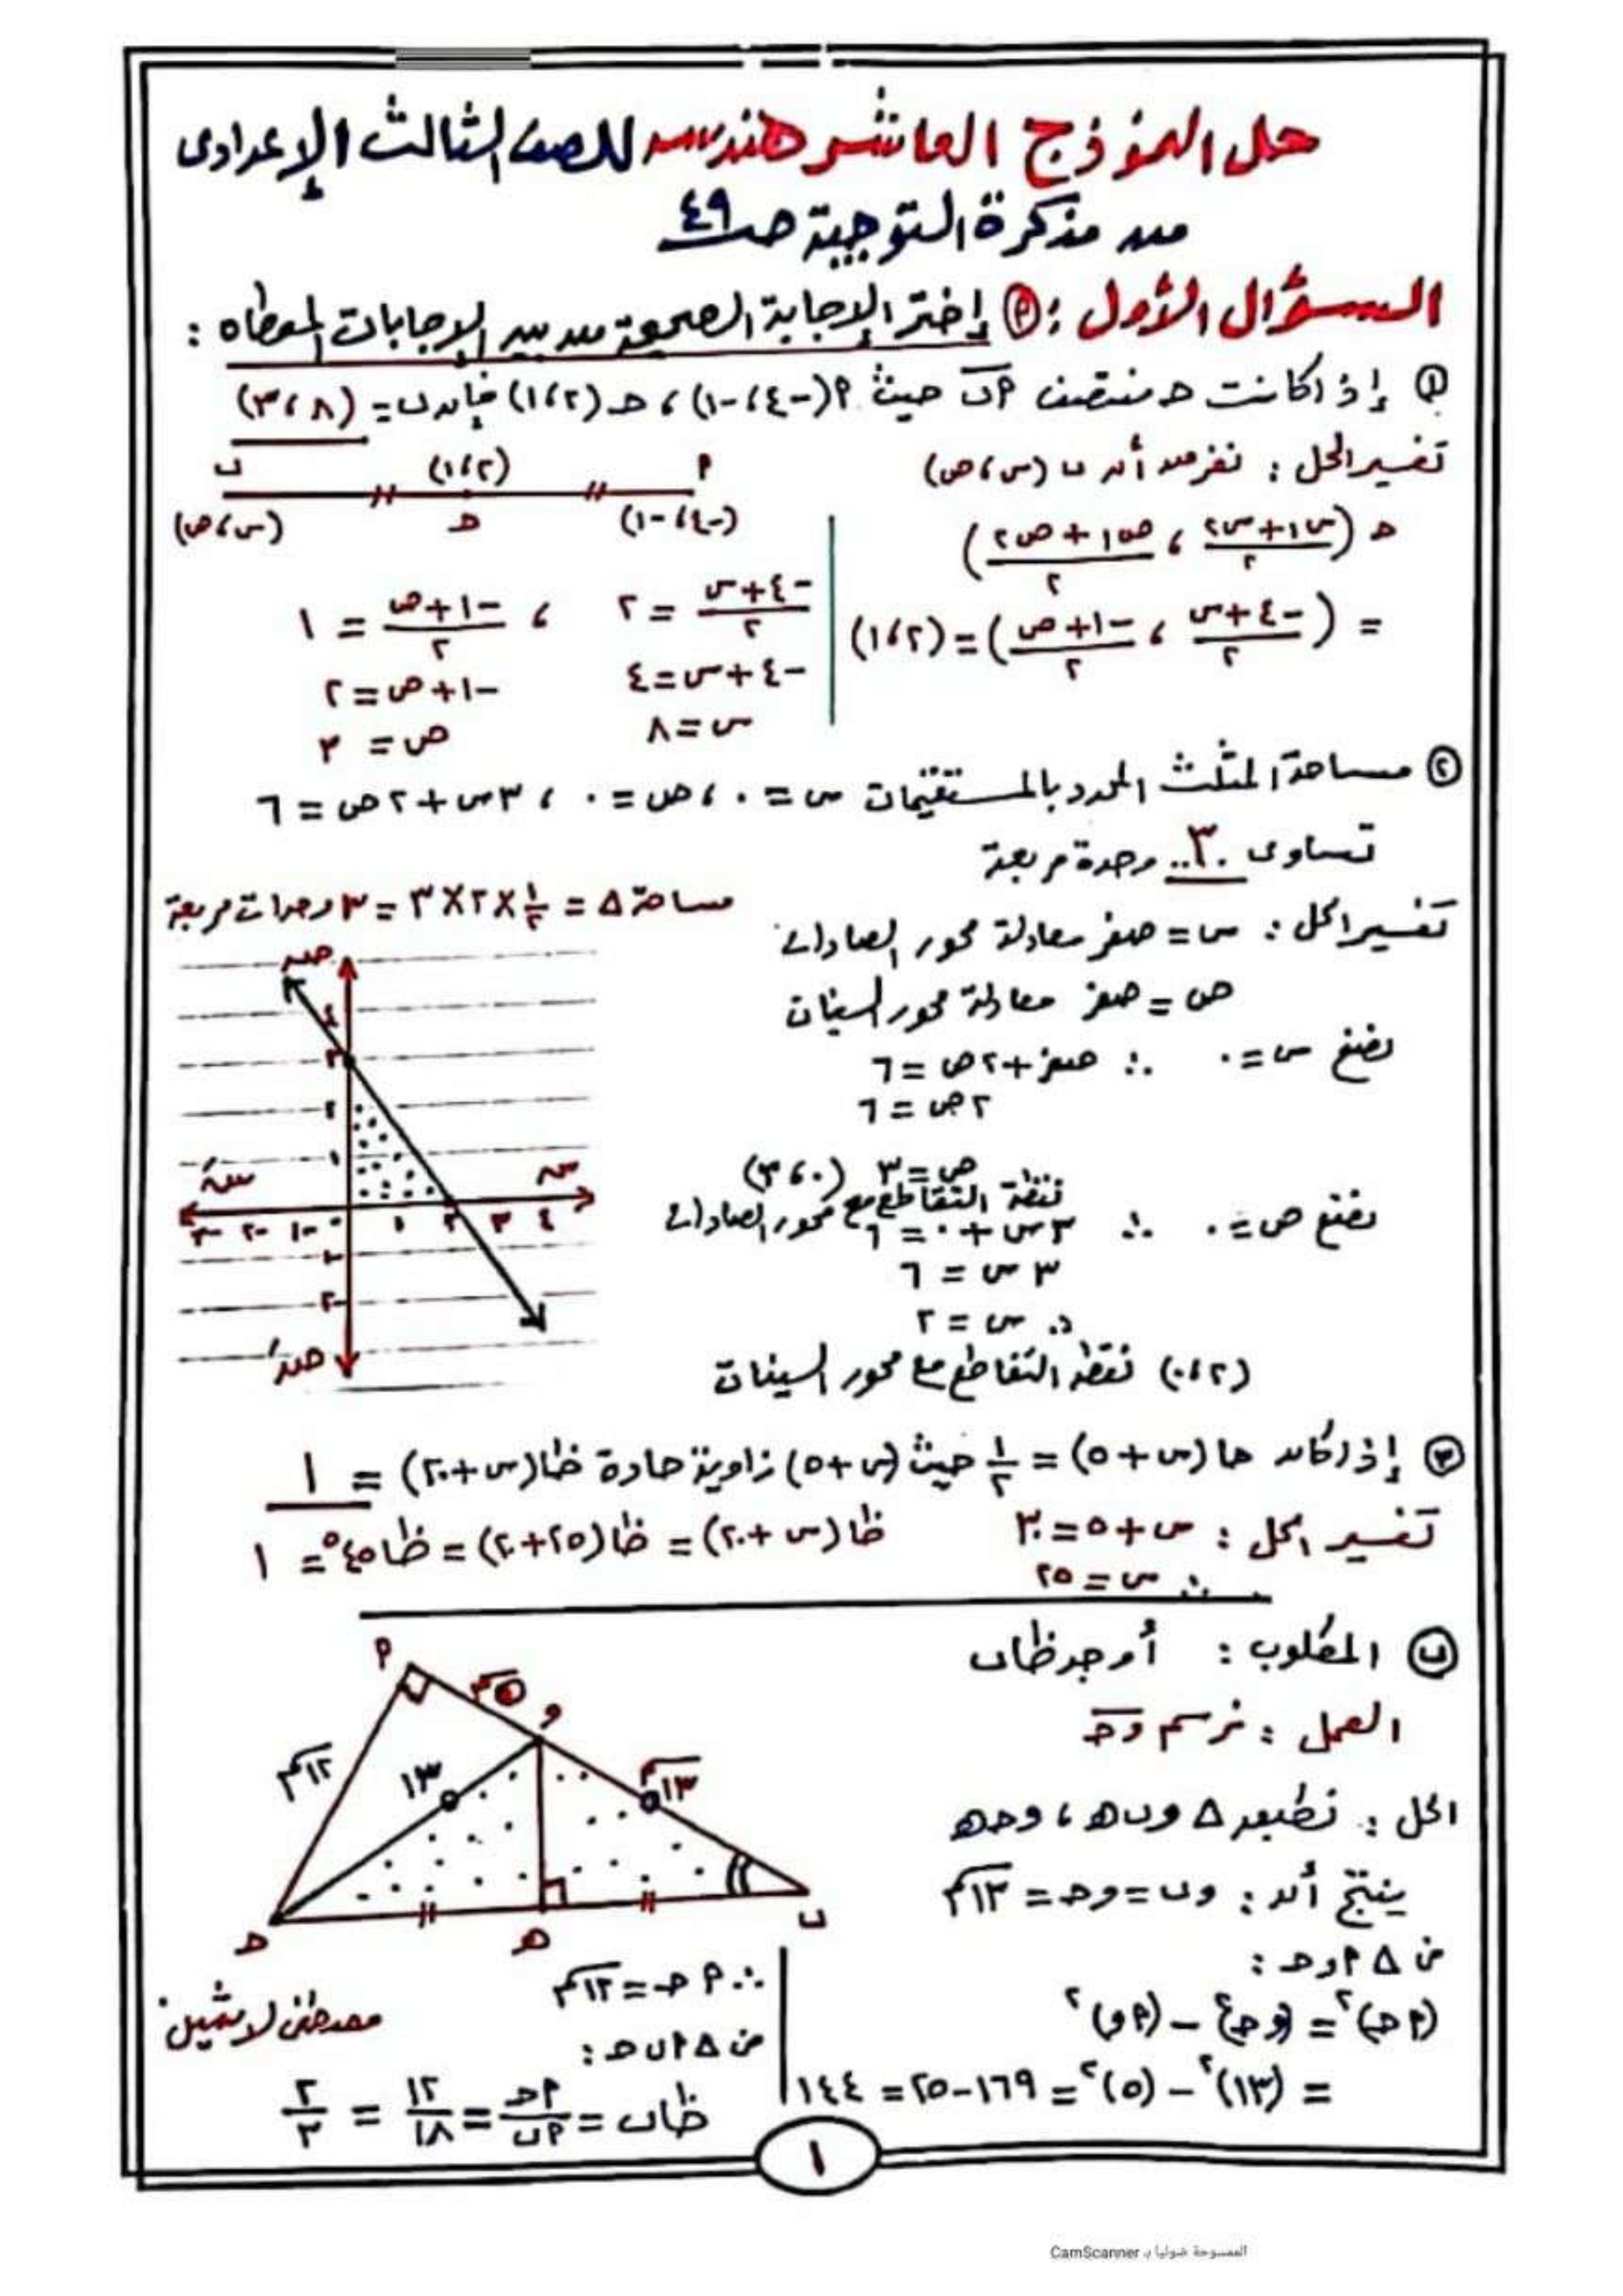 حل النموذج العاشر هندسه للصف الثالث الإعدادى
من مذكرة التوجية صـ ٤٩
السؤال الأول : (٢) إختر الإجابة الصحيحة من بين الإجابات المعطاه :
(١) إذا كانت حـ منتصف ٢ب حيث ٢(-٤،-١) ، حـ (٢،١) فإن ب = (٨،٣)
تفسير الحل : نفرض أن ب (س،ص)
٢ (-٤،-١) حـ (٢،١) ب (س،ص)
حـ (س١+س٢/٢ ، ص١+ص٢/٢)
= (-٤+س/٢ ، -١+ص/٢) = (٢،١)
-٤+س/٢ = ٢ ، -١+ص/٢ = ١
-٤+س=٤ -١+ص=٢
س=٨ ص=٣
(٢) مساحة المثلث المحدد بالمستقيمات س = ٠ ، ص = ٠ ، ٣س+٢ص = ٦
تساوى ..٣.. وحدة مربعة
تفسير الحل : س = صفر معادلة محور الصادات
مساحة △ = ١/٢ × ٢ × ٣ = ٣ وحدات مربعة
ص = صفر معادلة محور السينات
نضع س = ٠ ∴ صفر+٢ص = ٦
٢ص = ٦
ص = ٣ (٠،٣)
نقطة التقاطع مع محور الصادات
نضع ص = ٠ ∴ ٣س+٠ = ٦
٣س = ٦
∴ س = ٢
(٢،٠) نقطة التقاطع مع محور السينات
صـ
٤
٣
٢
١
سـَ سـ
-٣ -٢ -١ ٠ ١ ٢ ٣ ٤
-١
-٢
صـَ
(٣) إذا كان حا (س+٥) = ١/٢ حيث (س+٥) زاوية حادة ظا(س+٢٠) = ١
تفسير الحل : س+٥=٣٠
ظا (س+٢٠) = ظا(٢٥+٢٠) = ظا٤٥° = ١
∴ س = ٢٥
(ب) المطلوب : أوجد ظاب
العمل : نرسم وحـ
الحل : نطبق △ وب هـ ، وحـ هـ
ينتج أن : وب = وحـ = ١٣سم
من △ ٢وحـ :
(٢حـ)٢ = (وحـ)٢ - (٢و)٢
= (١٣)٢ - (٥)٢ = ١٦٩-٢٥ = ١٤٤
∴ ٢حـ = ١٢سم
من △ ٢ب حـ :
ظاب = ٢حـ/٢ب = ١٢/١٨ = ٢/٣
٢
٥سم
و
١٢سم
١٣
١٣سم
حـ
هـ
ب
مصطفى لاشين
١
الممسوحة ضوئيا بـ CamScanner